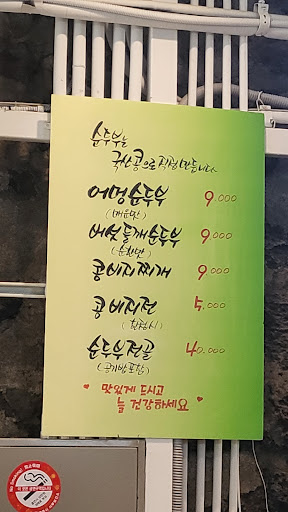 순두부는
국산콩으로 직접 만듭니다
어멍순두부 9,000
(매운맛)
버섯들깨순두부 9,000
(순한맛)
콩비지찌개 9,000
콩비지전 5,000
순두부전골 40,000
(공기밥포함)
맛있게 드시고
늘 건강하세요